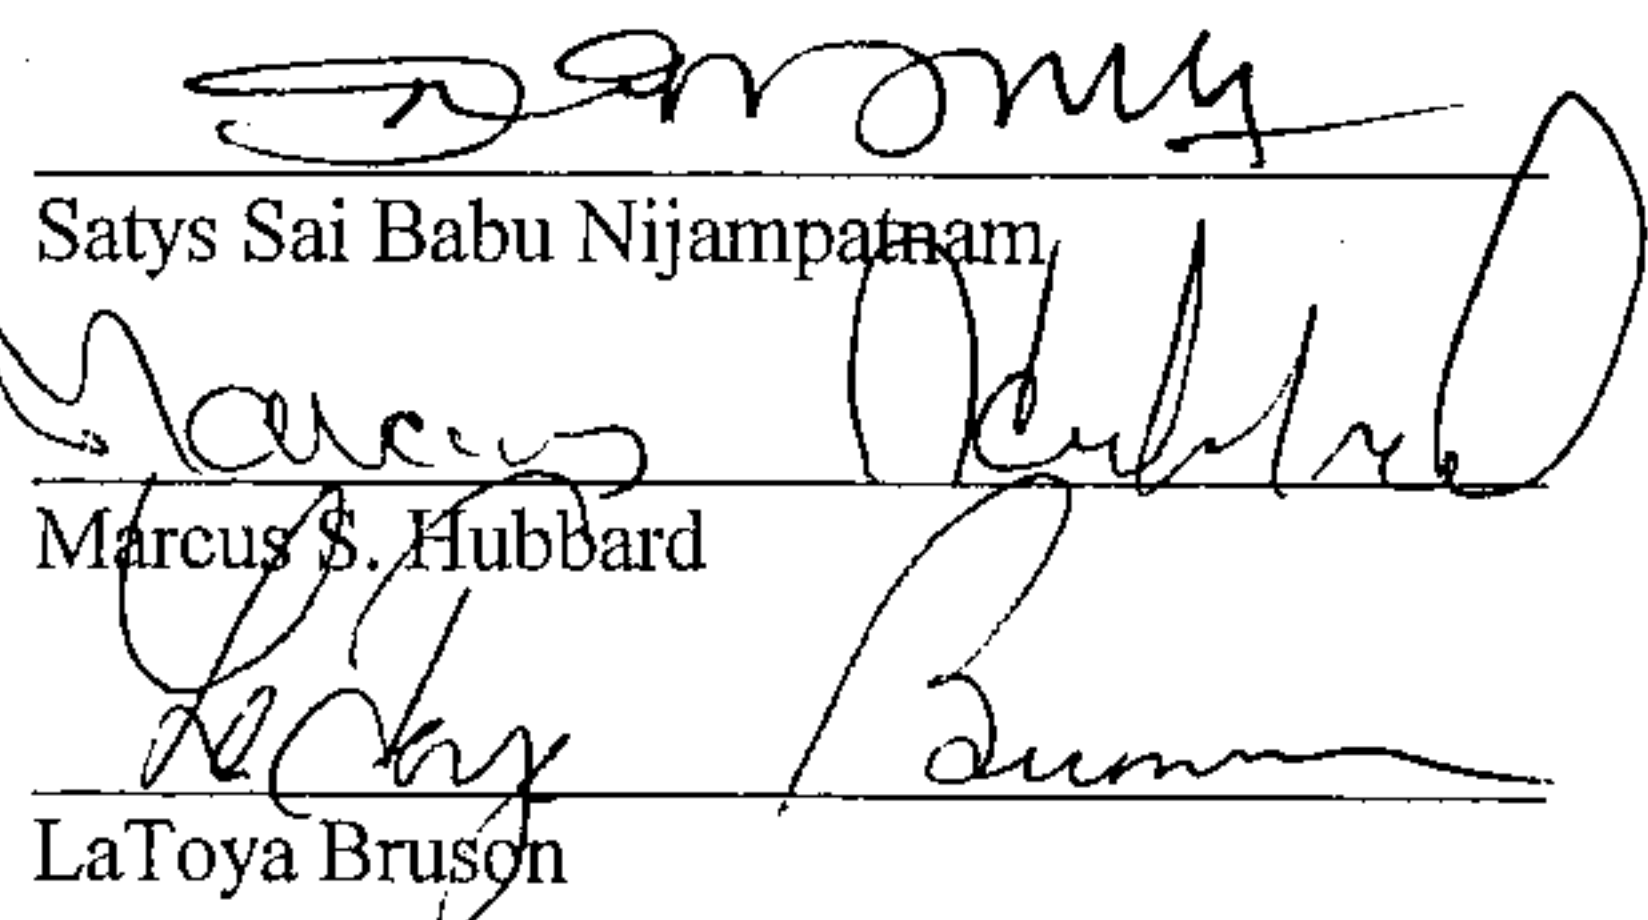 Satys Sai Babu Nijampatnam
Marcus Hubbard
Marcus S. Hubbard
LaToya Bruson